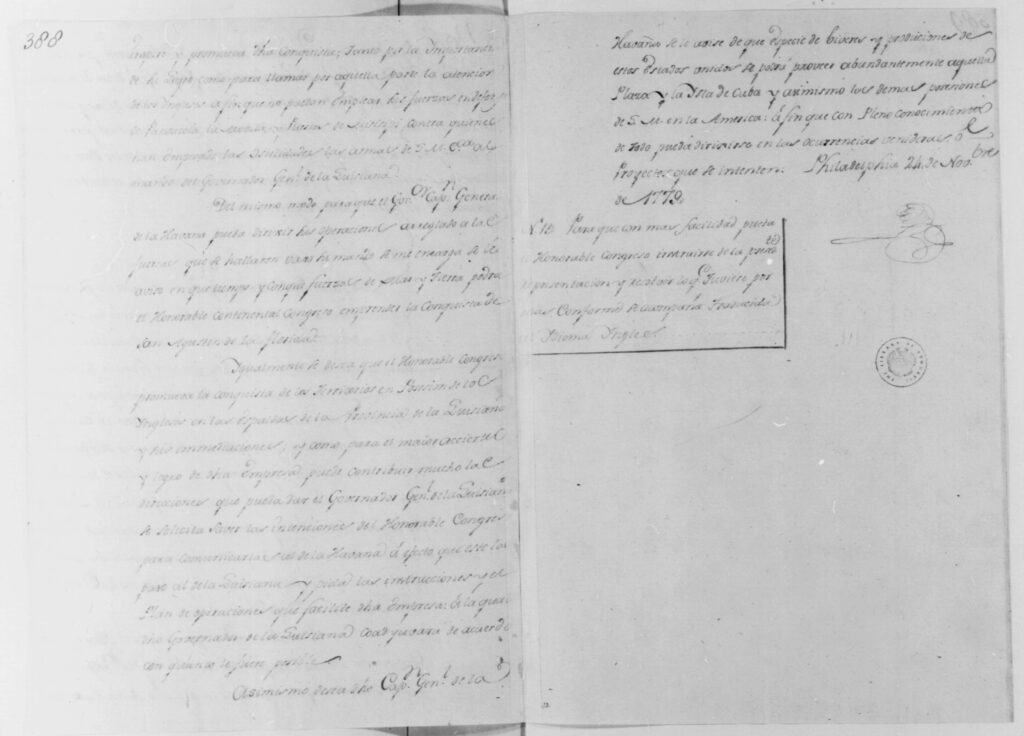 388
y promueva dha Conquista; tanto pr. la Importancia
de la Expo. como para llamar por aquella parte la atencion
de los Ingleses a fin que no puedan emplear sus fuerzas en defensa
de Panzacola, la Movila y Puestos de Misisipi, contra quienes
han empezado las Hostilidades las armas de S. M. Ca. al
mando del Governador Genl. de la Luisiana.
Del mismo modo para que el Govor. Capn. General
de la Havana pueda dirixir sus operaciones arreglado a las
fuerzas que se hallaren vajo su mando se me encarga de le
avise en que tiempo y con que fuerzas de Mar y Tierra podra
el Honorable Continental Congreso emprender la Conquista de
San Agustin de la Florida.
Igualmente se desea que el Honorable Congreso
promueva la conquista de los Territorios en Posesion de los
Ingleses en las espaldas de la Provincia de la Luisiana
y sus inmediaciones; y como para el maior acierto
y logro de dha Empresa puede contribuir mucho las
direciones que pueda dar el Governador Genl. de la Luisiana
se solicita saver las intenciones del Honorable Congreso
para comunicarlas al de la Havana á efecto que este los
pase al de la Luisiana y pida las instrucciones y el
Plan de operaciones que facilite dha Empresa: á la que
dho Governador de la Luisiana coadyuvará de acuerdo
con quanto le fuere posible.
Asimismo desea dho Capn. Genl. de la
Havana se le avise de que especie de biveres y produciones de
estos Estados unidos se podrá proveer abundantemente aquella
Plaza y la Isla de Cuba y asimismo las demas posesiones
de S. M. en la America: á fin que con Pleno conocimiento
de todo, pueda dirixirse en las ocurrencias venideras, ó
Proyectos que se intenten. Philadelphia 24. de Novbre.
de 1779.
Nt. Para que con mas facilidad pueda
el Honorable Congreso instruirse de la presente
Representacion y resolver lo que tuviere por
mas Conforme se acompaña Traducida
Idioma Ingles.
THE LIBRARY OF CONGRESS